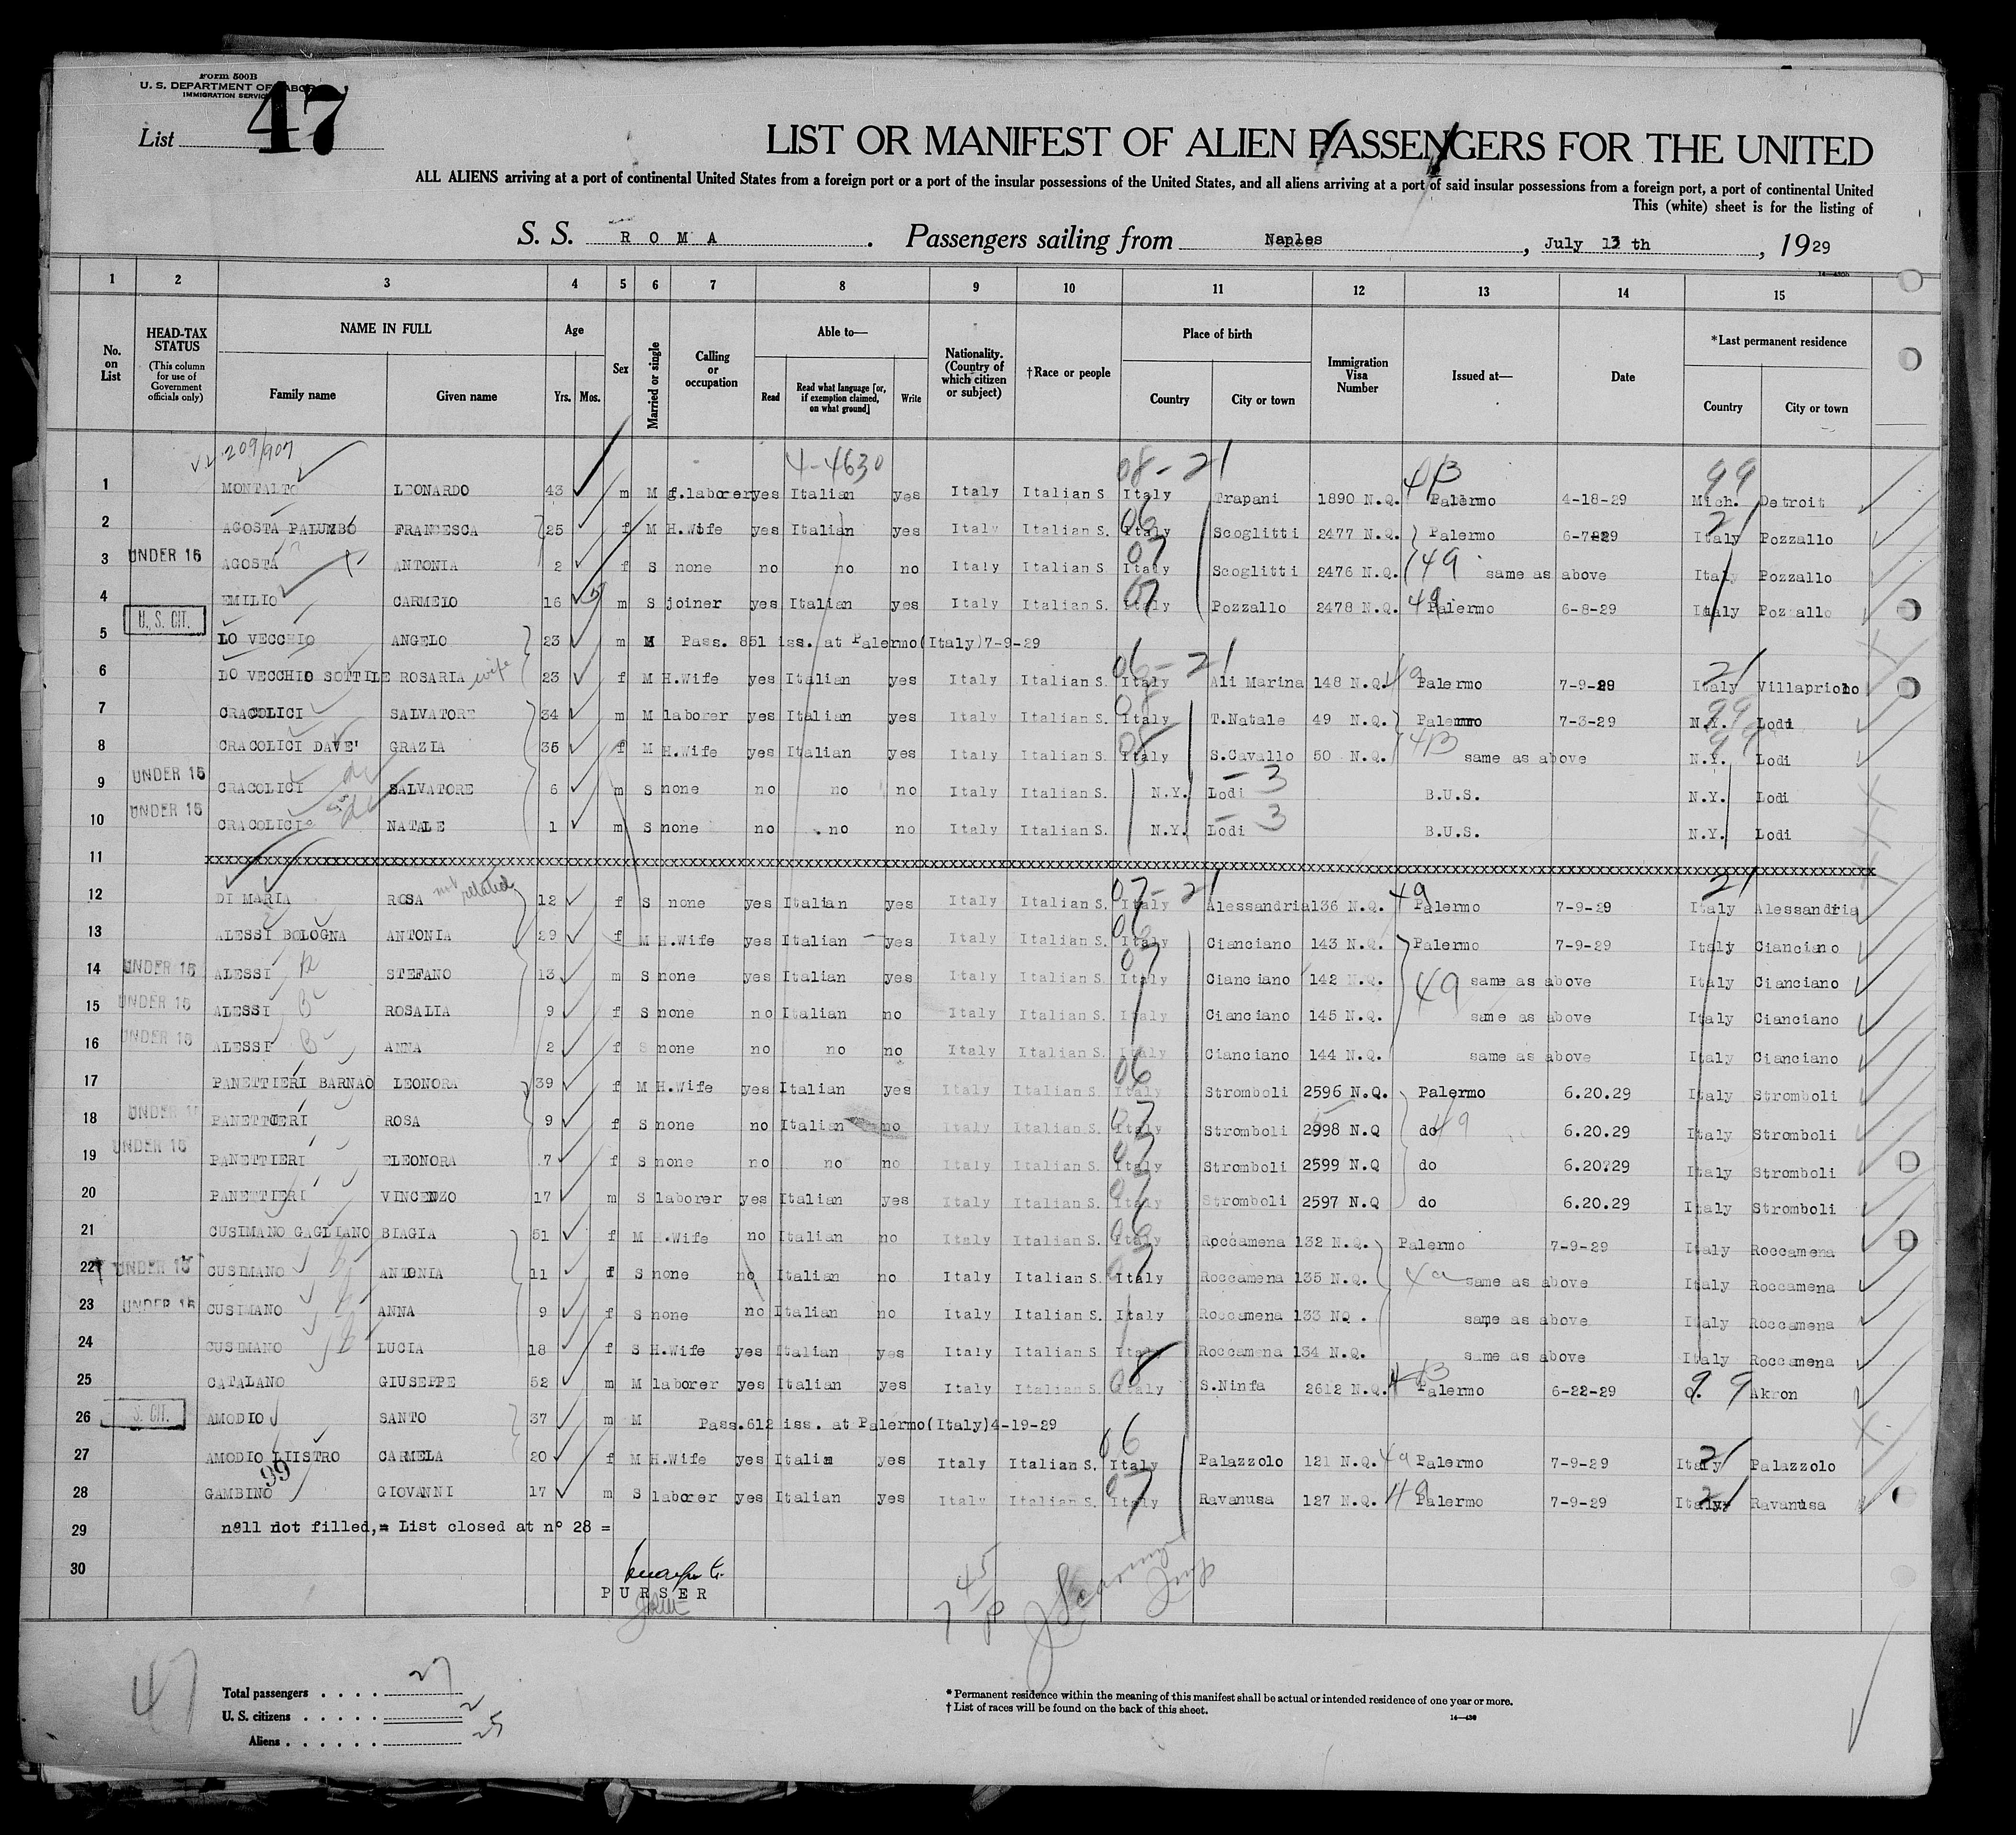 Form 500B
U. S. DEPARTMENT OF LABOR
IMMIGRATION SERVICE
List 47
LIST OR MANIFEST OF ALIEN PASSENGERS FOR THE UNITED
ALL ALIENS arriving at a port of continental United States from a foreign port or a port of the insular possessions of the United States, and all aliens arriving at a port of said insular possessions from a foreign port, a port of continental United
This (white) sheet is for the listing of
S. S. ROMA. Passengers sailing from Naples, July 13 th, 1929
14—430b
1 2 3 4 5 6 7 8 9 10 11 12 13 14 15
No. on List
HEAD-TAX STATUS (This column for use of Government officials only)
NAME IN FULL Family name Given name
Age Yrs. Mos.
Sex
Married or single
Calling or occupation
Able to— Read Read what language [or, if exemption claimed, on what ground] Write
Nationality. (Country of which citizen or subject)
†Race or people
Place of birth Country City or town
Immigration Visa Number
Issued at—
Date
*Last permanent residence Country City or town
209/907 4-4630 08-21 413 99
1 MONTALTO LEONARDO 43 m M f.laborer yes Italian yes Italy Italian S Italy Trapani 1890 N.Q. Palermo 4-18-29 Mich. Detroit
2 AGOSTA PALUMBO FRANCESCA 25 f M H.Wife yes Italian yes Italy Italian S. Italy Scoglitti 2477 N.Q. Palermo 6-7-29 Italy Pozzallo
3 UNDER 16 AGOSTA ANTONIA 2 f S none no no no Italy Italian S. Italy Scoglitti 2476 N.Q. 49 same as above Italy Pozzallo
4 EMILIO CARMELO 16 m S joiner yes Italian yes Italy Italian S. Italy Pozzallo 2478 N.Q. 49 Palermo 6-8-29 Italy Pozzallo
5 U. S. CIT. LO VECCHIO ANGELO 23 m M Pass. 851 iss. at Palermo(Italy)7-9-29
6 LO VECCHIO SOTTILE ROSARIA wife 23 f M H.Wife yes Italian yes Italy Italian S. Italy Ali Marina 148 N.Q. 49 Palermo 7-9-29 Italy Villapriolo
7 CRACOLICI SALVATORE 34 m M laborer yes Italian yes Italy Italian S. Italy T.Natale 49 N.Q. Palermo 7-3-29 N.Y. Lodi
8 CRACOLICI DAVE' GRAZIA 35 f M H.Wife yes Italian yes Italy Italian S. Italy S.Cavallo 50 N.Q. 413 same as above N.Y. Lodi
9 UNDER 16 CRACOLICI SALVATORE 6 m S none no no no Italy Italian S. N.Y. Lodi - 3 B.U.S. N.Y. Lodi
10 UNDER 16 CRACOLICI NATALE 1 m S none no no no Italy Italian S. N.Y. Lodi - 3 B.U.S. N.Y. Lodi
11 xxxxxxxxxxxxxxxxxxxxxxxxxxxxxxxxxxxxxxxx
12 DI MARIA ROSA not related 12 f S none yes Italian yes Italy Italian S. Italy Alessandria 136 N.Q. 49 Palermo 7-9-29 Italy Alessandria
13 ALESSI BOLOGNA ANTONIA 29 f M H.Wife yes Italian yes Italy Italian S. Italy Cianciano 143 N.Q. Palermo 7-9-29 Italy Cianciano
14 UNDER 16 ALESSI STEFANO 13 m S none yes Italian yes Italy Italian S. Italy Cianciano 142 N.Q. 49 same as above Italy Cianciano
15 UNDER 16 ALESSI ROSALIA 9 f S none no Italian no Italy Italian S. Italy Cianciano 145 N.Q. same as above Italy Cianciano
16 UNDER 16 ALESSI ANNA 2 f S none no no no Italy Italian S. Italy Cianciano 144 N.Q. same as above Italy Cianciano
17 PANETTIERI BARNAO LEONORA 39 f M H.Wife yes Italian yes Italy Italian S. Italy Stromboli 2596 N.Q. Palermo 6.20.29 Italy Stromboli
18 UNDER 16 PANETTIERI ROSA 9 f S none no Italian no Italy Italian S. Italy Stromboli 2998 N.Q do 49 6.20.29 Italy Stromboli
19 UNDER 16 PANETTIERI ELEONORA 7 f S none no no no Italy Italian S. Italy Stromboli 2599 N.Q do 6.20.29 Italy Stromboli
20 PANETTIERI VINCENZO 17 m S laborer yes Italian yes Italy Italian S. Italy Stromboli 2597 N.Q do 6.20.29 Italy Stromboli
21 CUSIMANO GAGLIANO BIAGIA 51 f M H.Wife no Italian no Italy Italian S. Italy Roccamena 132 N.Q. Palermo 7-9-29 Italy Roccamena
22 UNDER 16 CUSIMANO ANTONIA 11 f S none no Italian no Italy Italian S. Italy Roccamena 135 N.Q. 49 same as above Italy Roccamena
23 UNDER 16 CUSIMANO ANNA 9 f S none no Italian no Italy Italian S. Italy Roccamena 133 NQ. same as above Italy Roccamena
24 CUSIMANO LUCIA 18 f S H.Wife yes Italian yes Italy Italian S. Italy Roccamena 134 N.Q. same as above Italy Roccamena
25 CATALANO GIUSEPPE 52 m M laborer yes Italian yes Italy Italian S. Italy S.Ninfa 2612 N.Q. 413 Palermo 6-22-29 O. Akron
26 S. CIT. AMODIO SANTO 37 m M Pass.612 iss. at Palermo(Italy)4-19-29
27 AMODIO LIISTRO CARMELA 20 f M H.Wife yes Italian yes Italy Italian S. Italy Palazzolo 121 N.Q. 49 Palermo 7-9-29 Italy Palazzolo
28 GAMBINO 99 GIOVANNI 17 m S laborer yes Italian yes Italy Italian S. Italy Ravanusa 127 N.Q. 49 Palermo 7-9-29 Italy Ravanusa
29 n°11 not filled,= List closed at n° 28 =
30
PURSER
47
Total passengers . . . . 27
U. S. citizens . . . . . 2
Aliens . . . . . . 25
* Permanent residence within the meaning of this manifest shall be actual or intended residence of one year or more.
† List of races will be found on the back of this sheet.
14—430